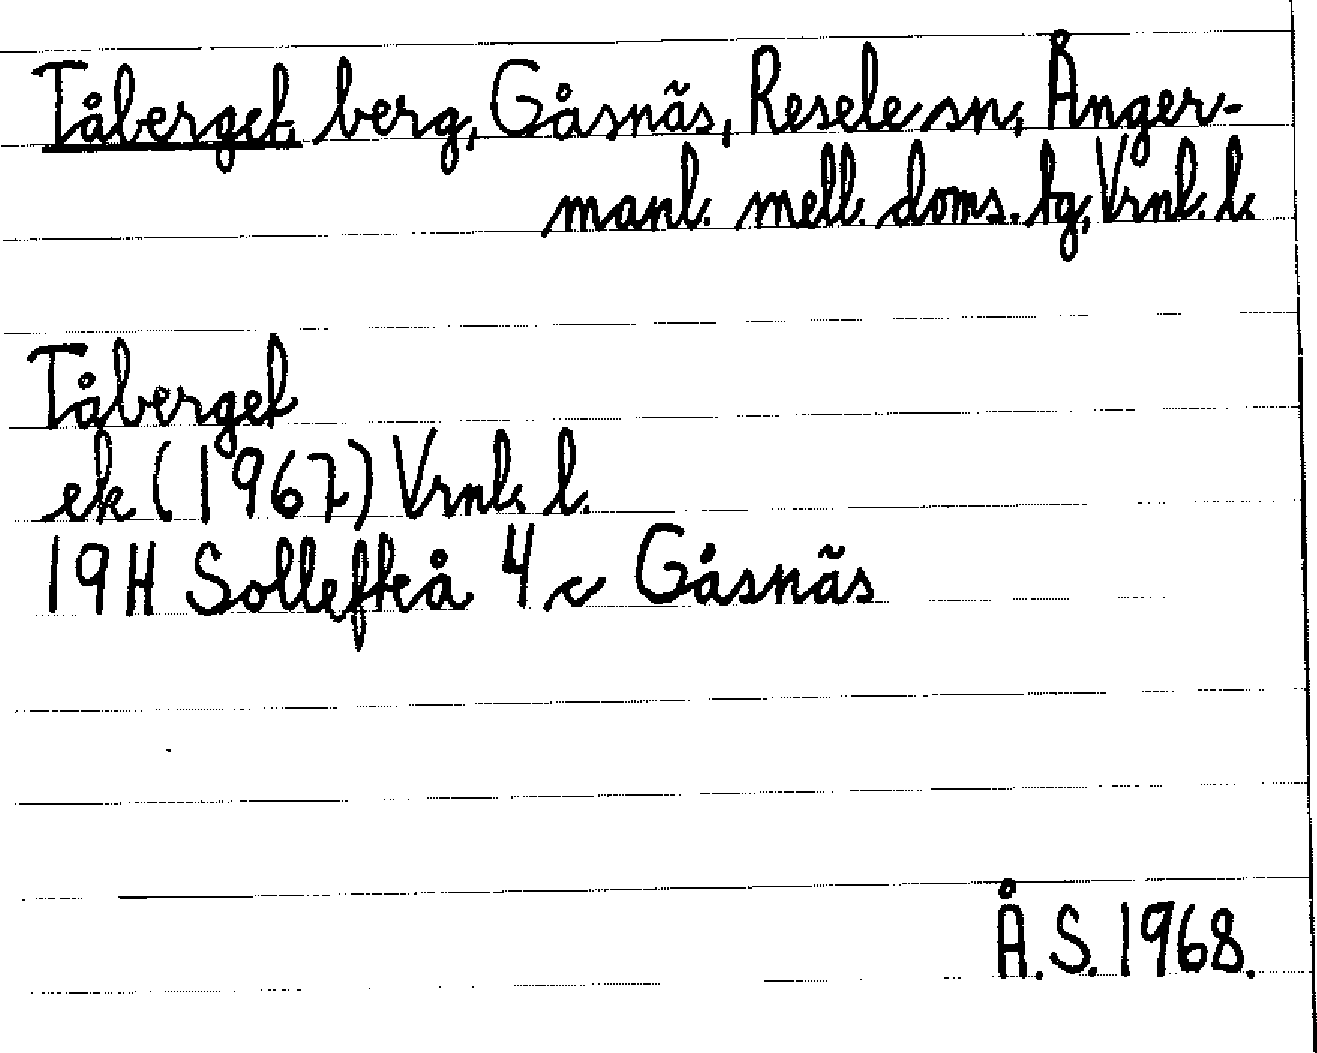 Tåberget, berg, Gåsnäs, Resele sn, Ånger-
manl. mell. doms. tg, Vrnl. l.
Tåberget
ek (1967) Vrnl. l.
19H Sollefteå 4c Gåsnäs
Å.S. 1968.